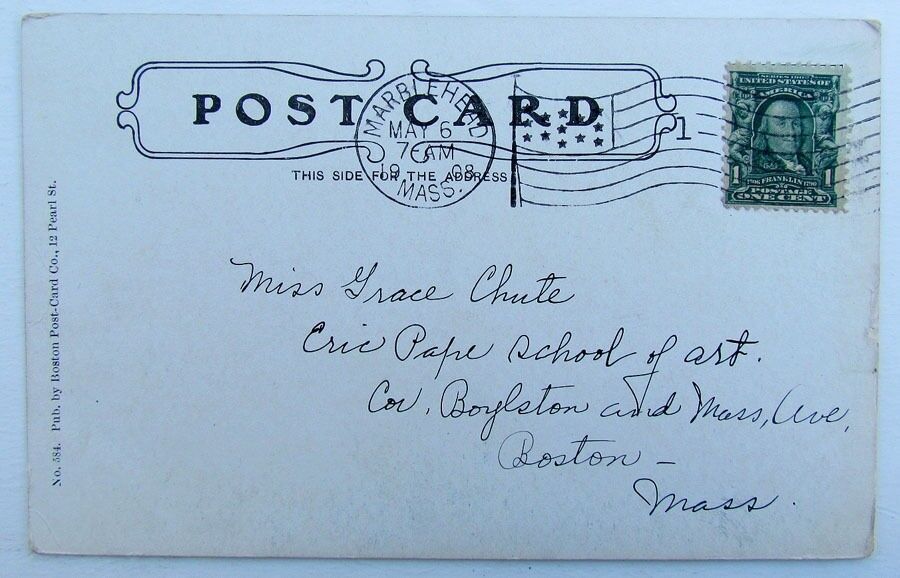 POST CARD
MARBLEHEAD
MAY 6
7 AM
1908
MASS.
1
SERIES 1902
UNITED STATES OF
AMERICA
1706 FRANKLIN 1790
1 POSTAGE 1
ONE CENT
THIS SIDE FOR THE ADDRESS
Miss Grace Chute
Eric Pape School of art.
Cor. Boylston and Mass, Ave,
Boston –
Mass.
No. 584. Pub. by Boston Post-Card Co., 12 Pearl St.